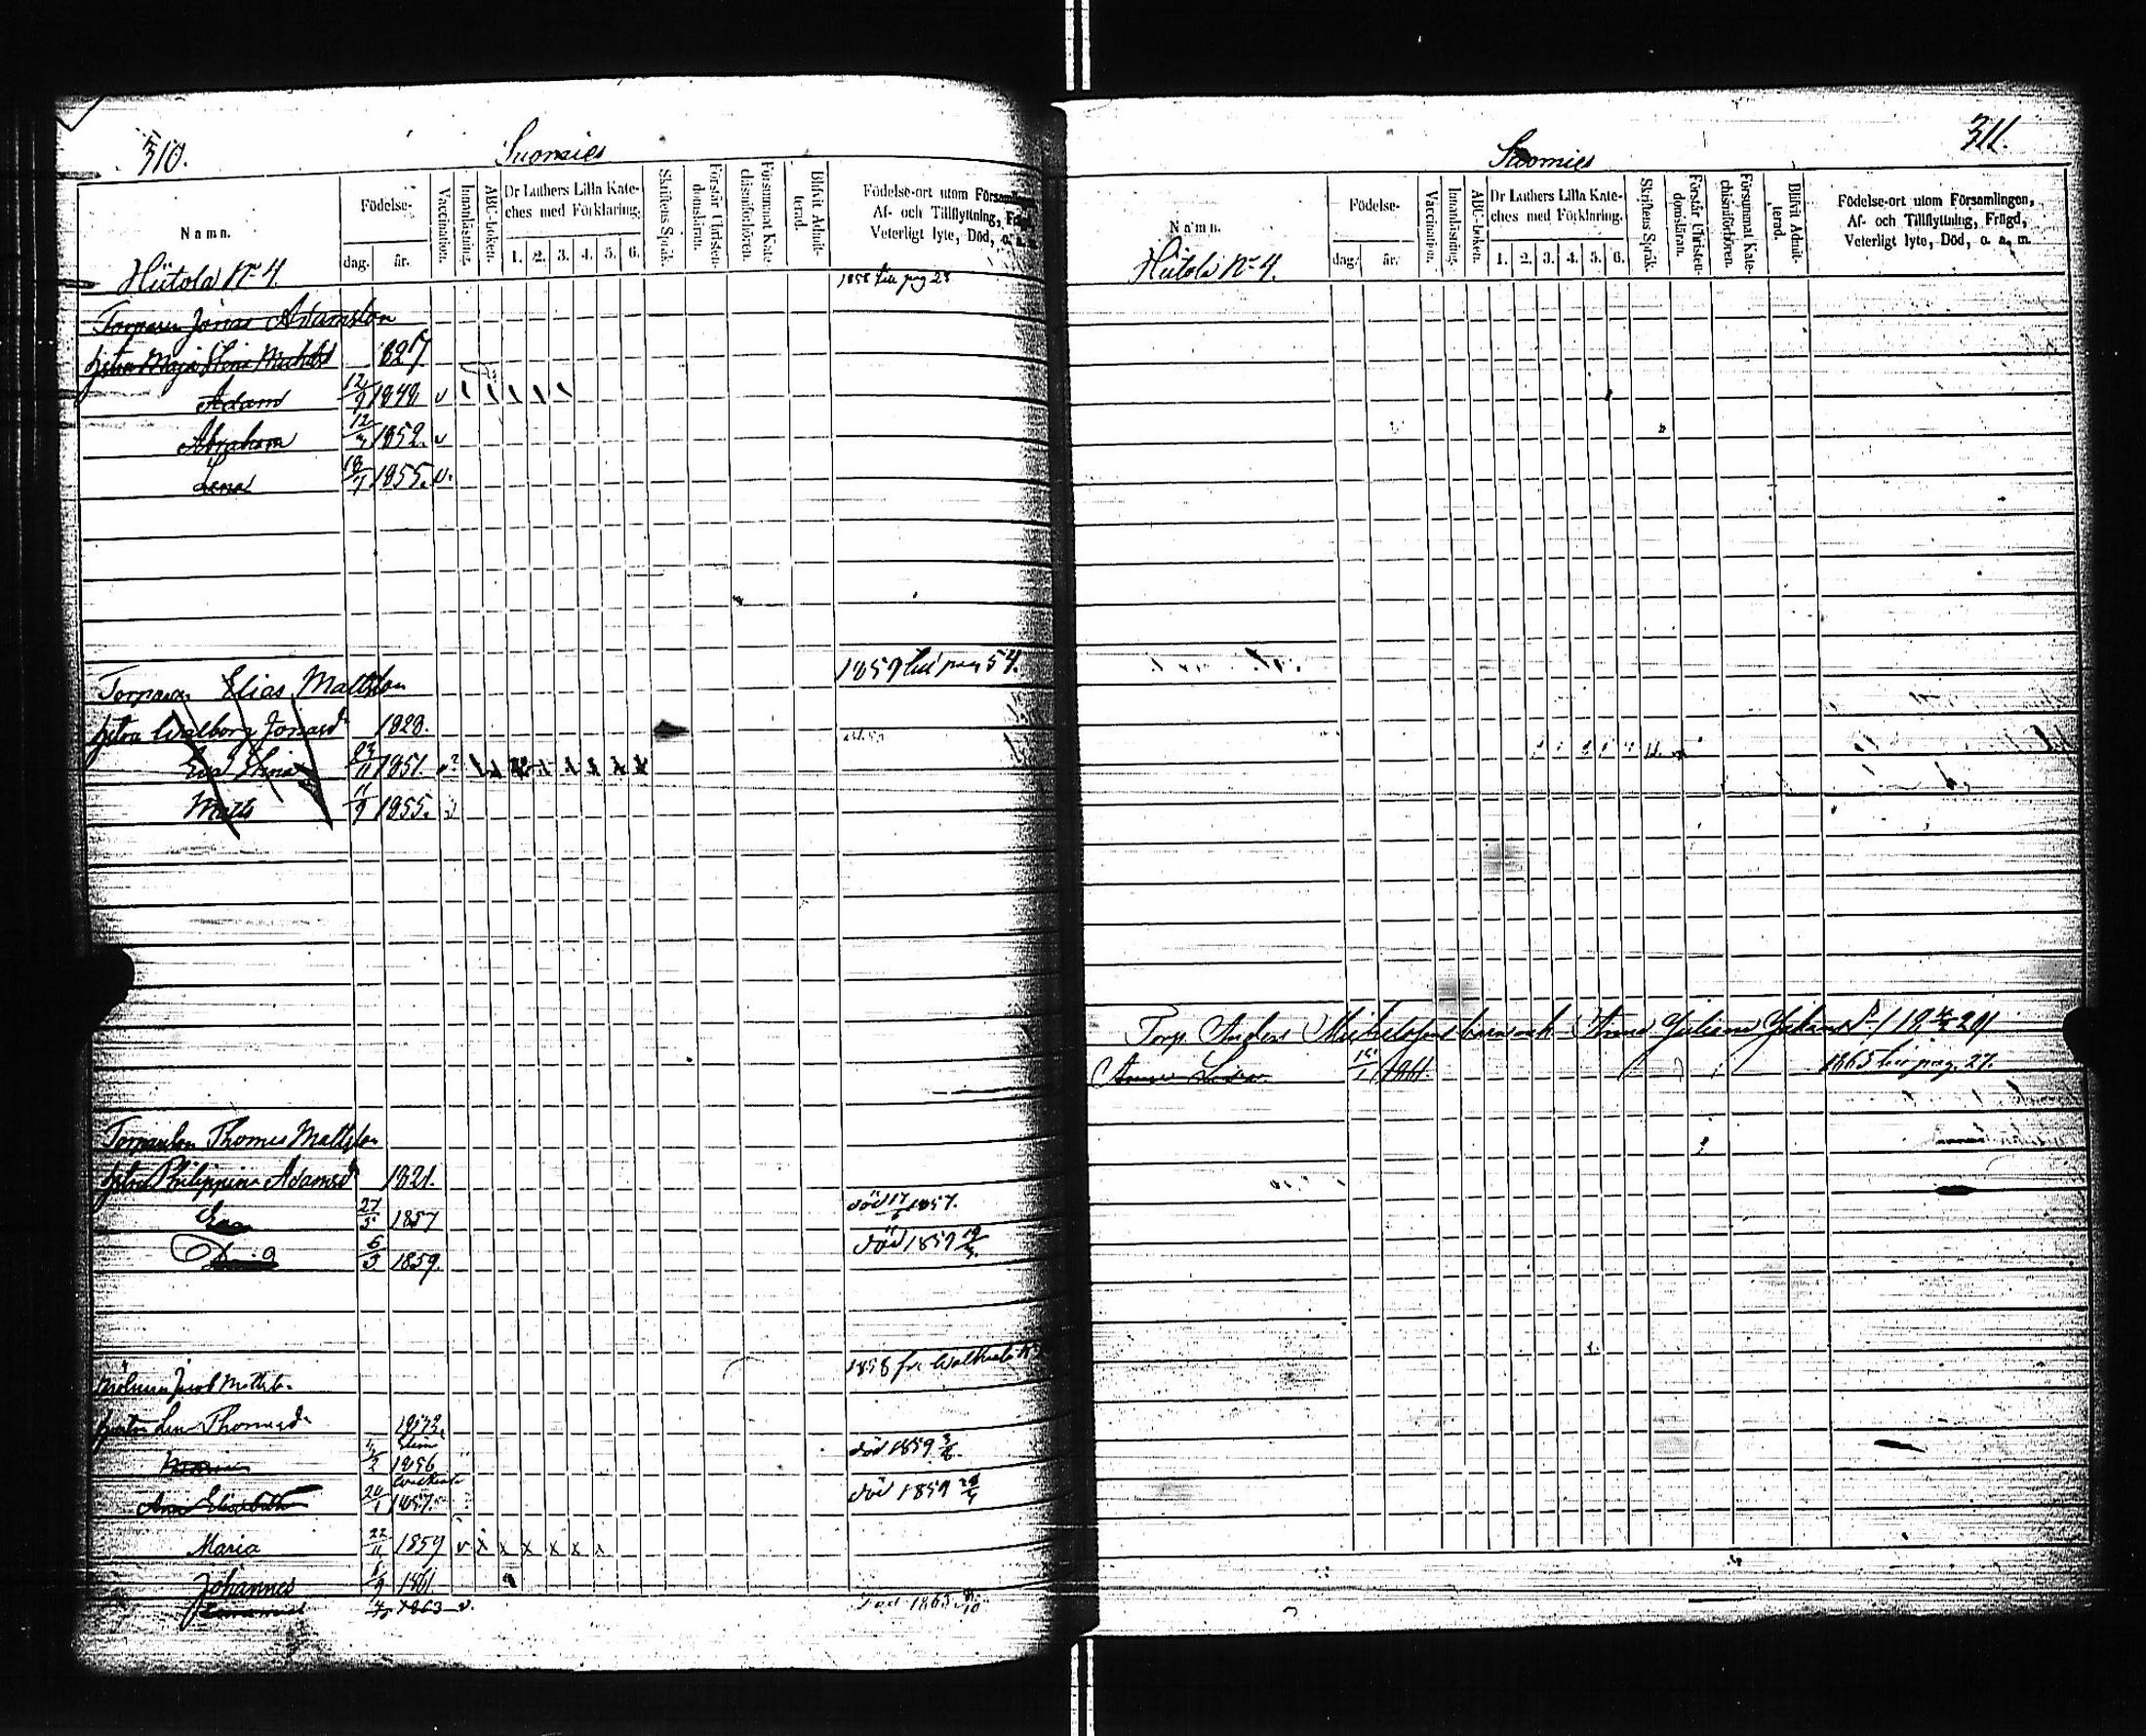 310.
Suomies
Namn.
Födelse-
dag.
år.
Vaccination.
Innanläsning.
ABC-boken.
Dr Luthers Lilla Kate-
ches med Förklaring.
1. 2. 3. 4. 5. 6.
Skriftens Språk.
Förstår Christen-
domsläran.
Försummat Kate-
chismiförhören.
Blifvit Admit-
terad.
Födelse-ort utom Församlingen,
Af- och Tillflyttning, Frägd,
Veterligt lyte, Död, o. a. m.
Hiitola No 4.
1858 till pag 28
Torparen Jonas Adamsson
hustru Maja Stina 1827
Adam 12/9 1848 v
Abraham 12/3 1852. v
Lena 18/7 1855. v.
1859 till pag 54.
Torparen Elias Mattsson
hustru Walborg Jonasd 1828.
Eva Stina 23/11 1851. v?
Matts 11/9 1855.
Torparson Thomas Mattsson
hustru Philippina Adamsd 1821.
Eva 27/5 1857 död 17/6 1857.
6/3 1859. död 1859 19/3.
1858 från
Jacob Mattss.
hustru Lena Thomasd.
1856 död 1859 3/6.
Anna Elisabeth 20/1 1857. död 1859
Maria 22/11 1859 v x x x x x
Johannes 1861
1863 v. Död 1865
311.
Suomies
Namn.
Födelse-
dag.
år.
Vaccination.
Innanläsning.
ABC-boken.
Dr Luthers Lilla Kate-
ches med Förklaring.
1. 2. 3. 4. 5. 6.
Skriftens Språk.
Förstår Christen-
domsläran.
Försummat Kate-
chismiförhören.
Blifvit Admit-
terad.
Födelse-ort utom Församlingen,
Af- och Tillflyttning, Frägd,
Veterligt lyte, Död, o. a. m.
Hiitola No 4.
Torp. Anders Michelsson Anna Juliana
1861. 1865 till pag. 27.